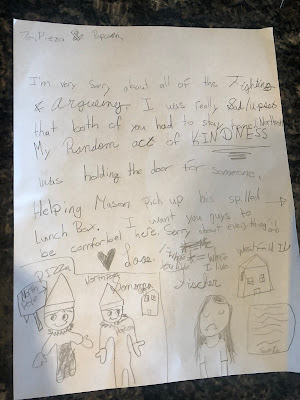 To, Pizza & Popcorn,
I'm very sorry about all of the Fighting
& Arguing. I was really Sad/upset
that both of you had to stay
My Random act of KINDNESS
was holding the door for someone,
Helping Mason pick up his spilled →
Lunch Box. I want you guys to
be comforbel here. Sorry about everything!
Love,
Fischer
PIZZA
North Pole